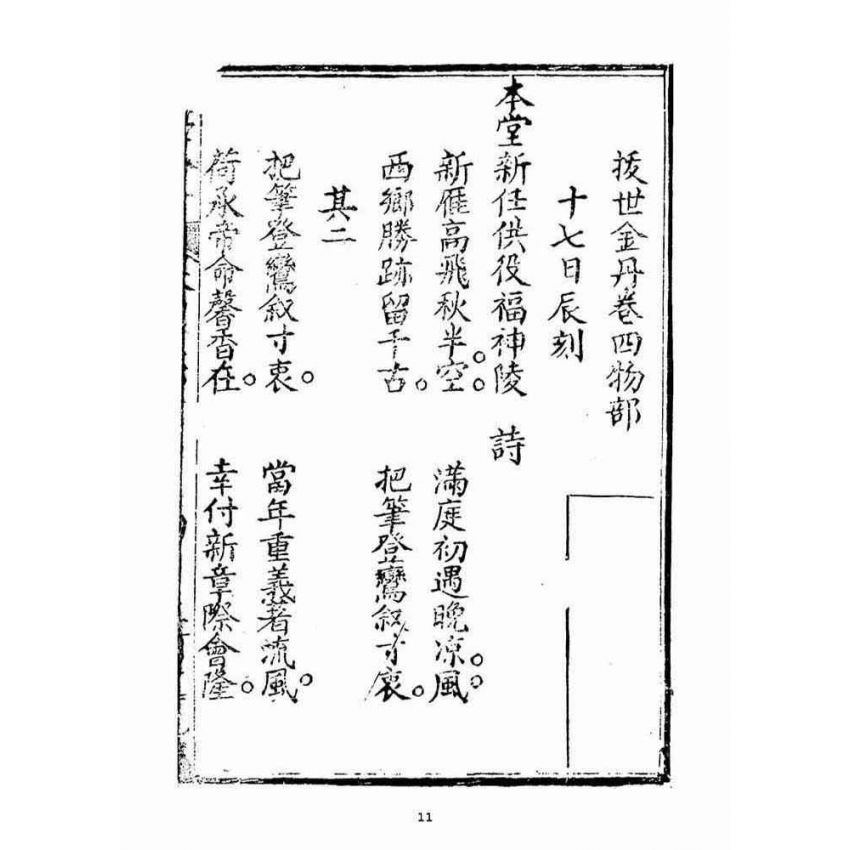 拔世金丹卷四物部
十七日辰刻
本堂新任供役福神陵　詩
新雁高飛秋半空。　滿庭初遇晚凉風。
西鄉勝跡留千古。　把筆登鸞叙寸衷。
其二
把筆登鸞叙寸衷。　當年重義著流風。
荷承帝命馨香在。　幸付新章際會隆。
11